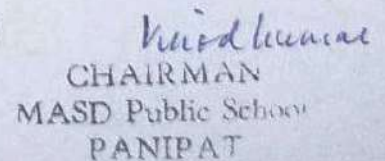 Vinod Kumar
CHAIRMAN
MASD Public School
PANIPAT